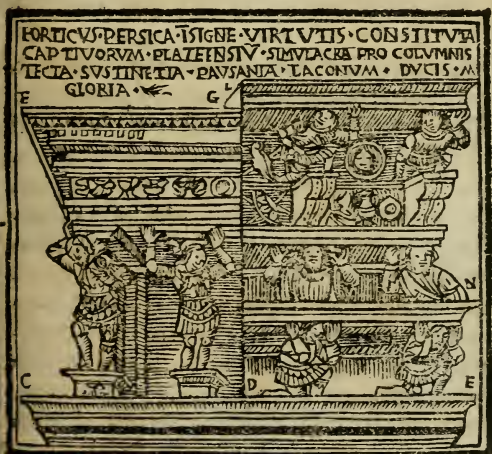 PORTICUS · PERSICA · ĪSIGNE · VIRTUTIS · CONSTITUTA
CAPTIVORUM · PLATEENSIŪ · SIMULACRA PRO COLUMNIS
TECTA · SUSTINETIA · PAUSANIA · LACONUM · DUCIS · M
GLORIA ·
E
G L
N
C
D
E